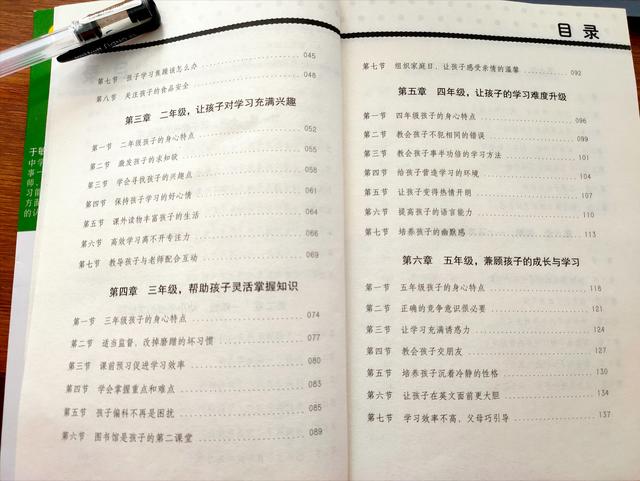 第七节 孩子学习焦躁该怎么办 045
第八节 关注孩子的食品安全 048
第三章 二年级，让孩子对学习充满兴趣
第一节 二年级孩子的身心特点 052
第二节 激发孩子的求知欲 055
第三节 学会寻找孩子的兴趣点 058
第四节 保持孩子学习的好心情 061
第五节 课外读物丰富孩子的生活 064
第六节 高效学习离不开专注力 066
第七节 教导孩子与老师配合互动 069
第四章 三年级，帮助孩子灵活掌握知识
第一节 三年级孩子的身心特点 074
第二节 适当监督，改掉磨蹭的坏习惯 077
第三节 课前预习促进学习效率 080
第四节 学会掌握重点和难点 083
第五节 孩子偏科不再是困扰 085
第六节 图书馆是孩子的第二课堂 089
目录
第七节 组织家庭日，让孩子感受亲情的温馨 092
第五章 四年级，让孩子的学习难度升级
第一节 四年级孩子的身心特点 096
第二节 教会孩子不犯相同的错误 099
第三节 教会孩子事半功倍的学习方法 101
第四节 给孩子营造学习的环境 104
第五节 让孩子变得热情开朗 107
第六节 提高孩子的语言能力 110
第七节 培养孩子的幽默感 113
第六章 五年级，兼顾孩子的成长与学习
第一节 五年级孩子的身心特点 118
第二节 正确的竞争意识很必要 121
第三节 让学习充满诱惑力 124
第四节 教会孩子交朋友 127
第五节 培养孩子沉着冷静的性格 130
第六节 让孩子在英文面前更大胆 134
第七节 学习效率不高，父母巧引导 137